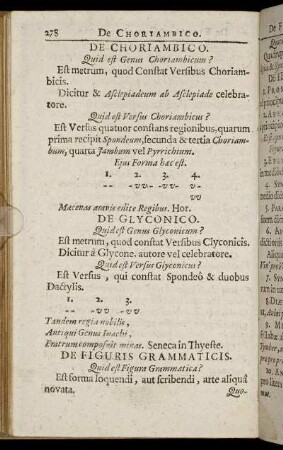 278 DE CHORIAMBICO.
DE CHORIAMBICO.
Quid est Genus Choriambicum?
Est metrum, quod Constat Versibus Choriam-
bicis.
Dicitur & Asclepiadeum ab Asclepiade celebra-
tore.
Quid est Versus Choriambicus?
Est Versus quatuor constans regionibus, quarum
prima recipit Spondeum, secunda & tertia Choriam-
bum, quarta Jambum vel Pyrrichium.
Ejus Forma hæc est.
1. 2. 3. 4.
-- -vv- -vv- v-
vv
Mæcenas atavis edite Regibus. Hor.
DE GLYCONICO.
Quid est Genus Glyconicum?
Est metrum, quod constat Versibus Clyconicis.
Dicitur à Glycone. autore vel celebratore.
Quid est Versus Glyconicus?
Est Versus, qui constat Spondeô & duobus
Dactylis.
1. 2. 3.
-- -vv -vv
Tandem regia nobilis,
Antiqui Genus Inachi,
Fratrum composuit minas. Seneca in Thyeste.
DE FIGURIS GRAMMATICIS.
Quid est Figura Grammatica?
Est forma loquendi, aut scribendi, arte aliquâ
novata.
Quo-